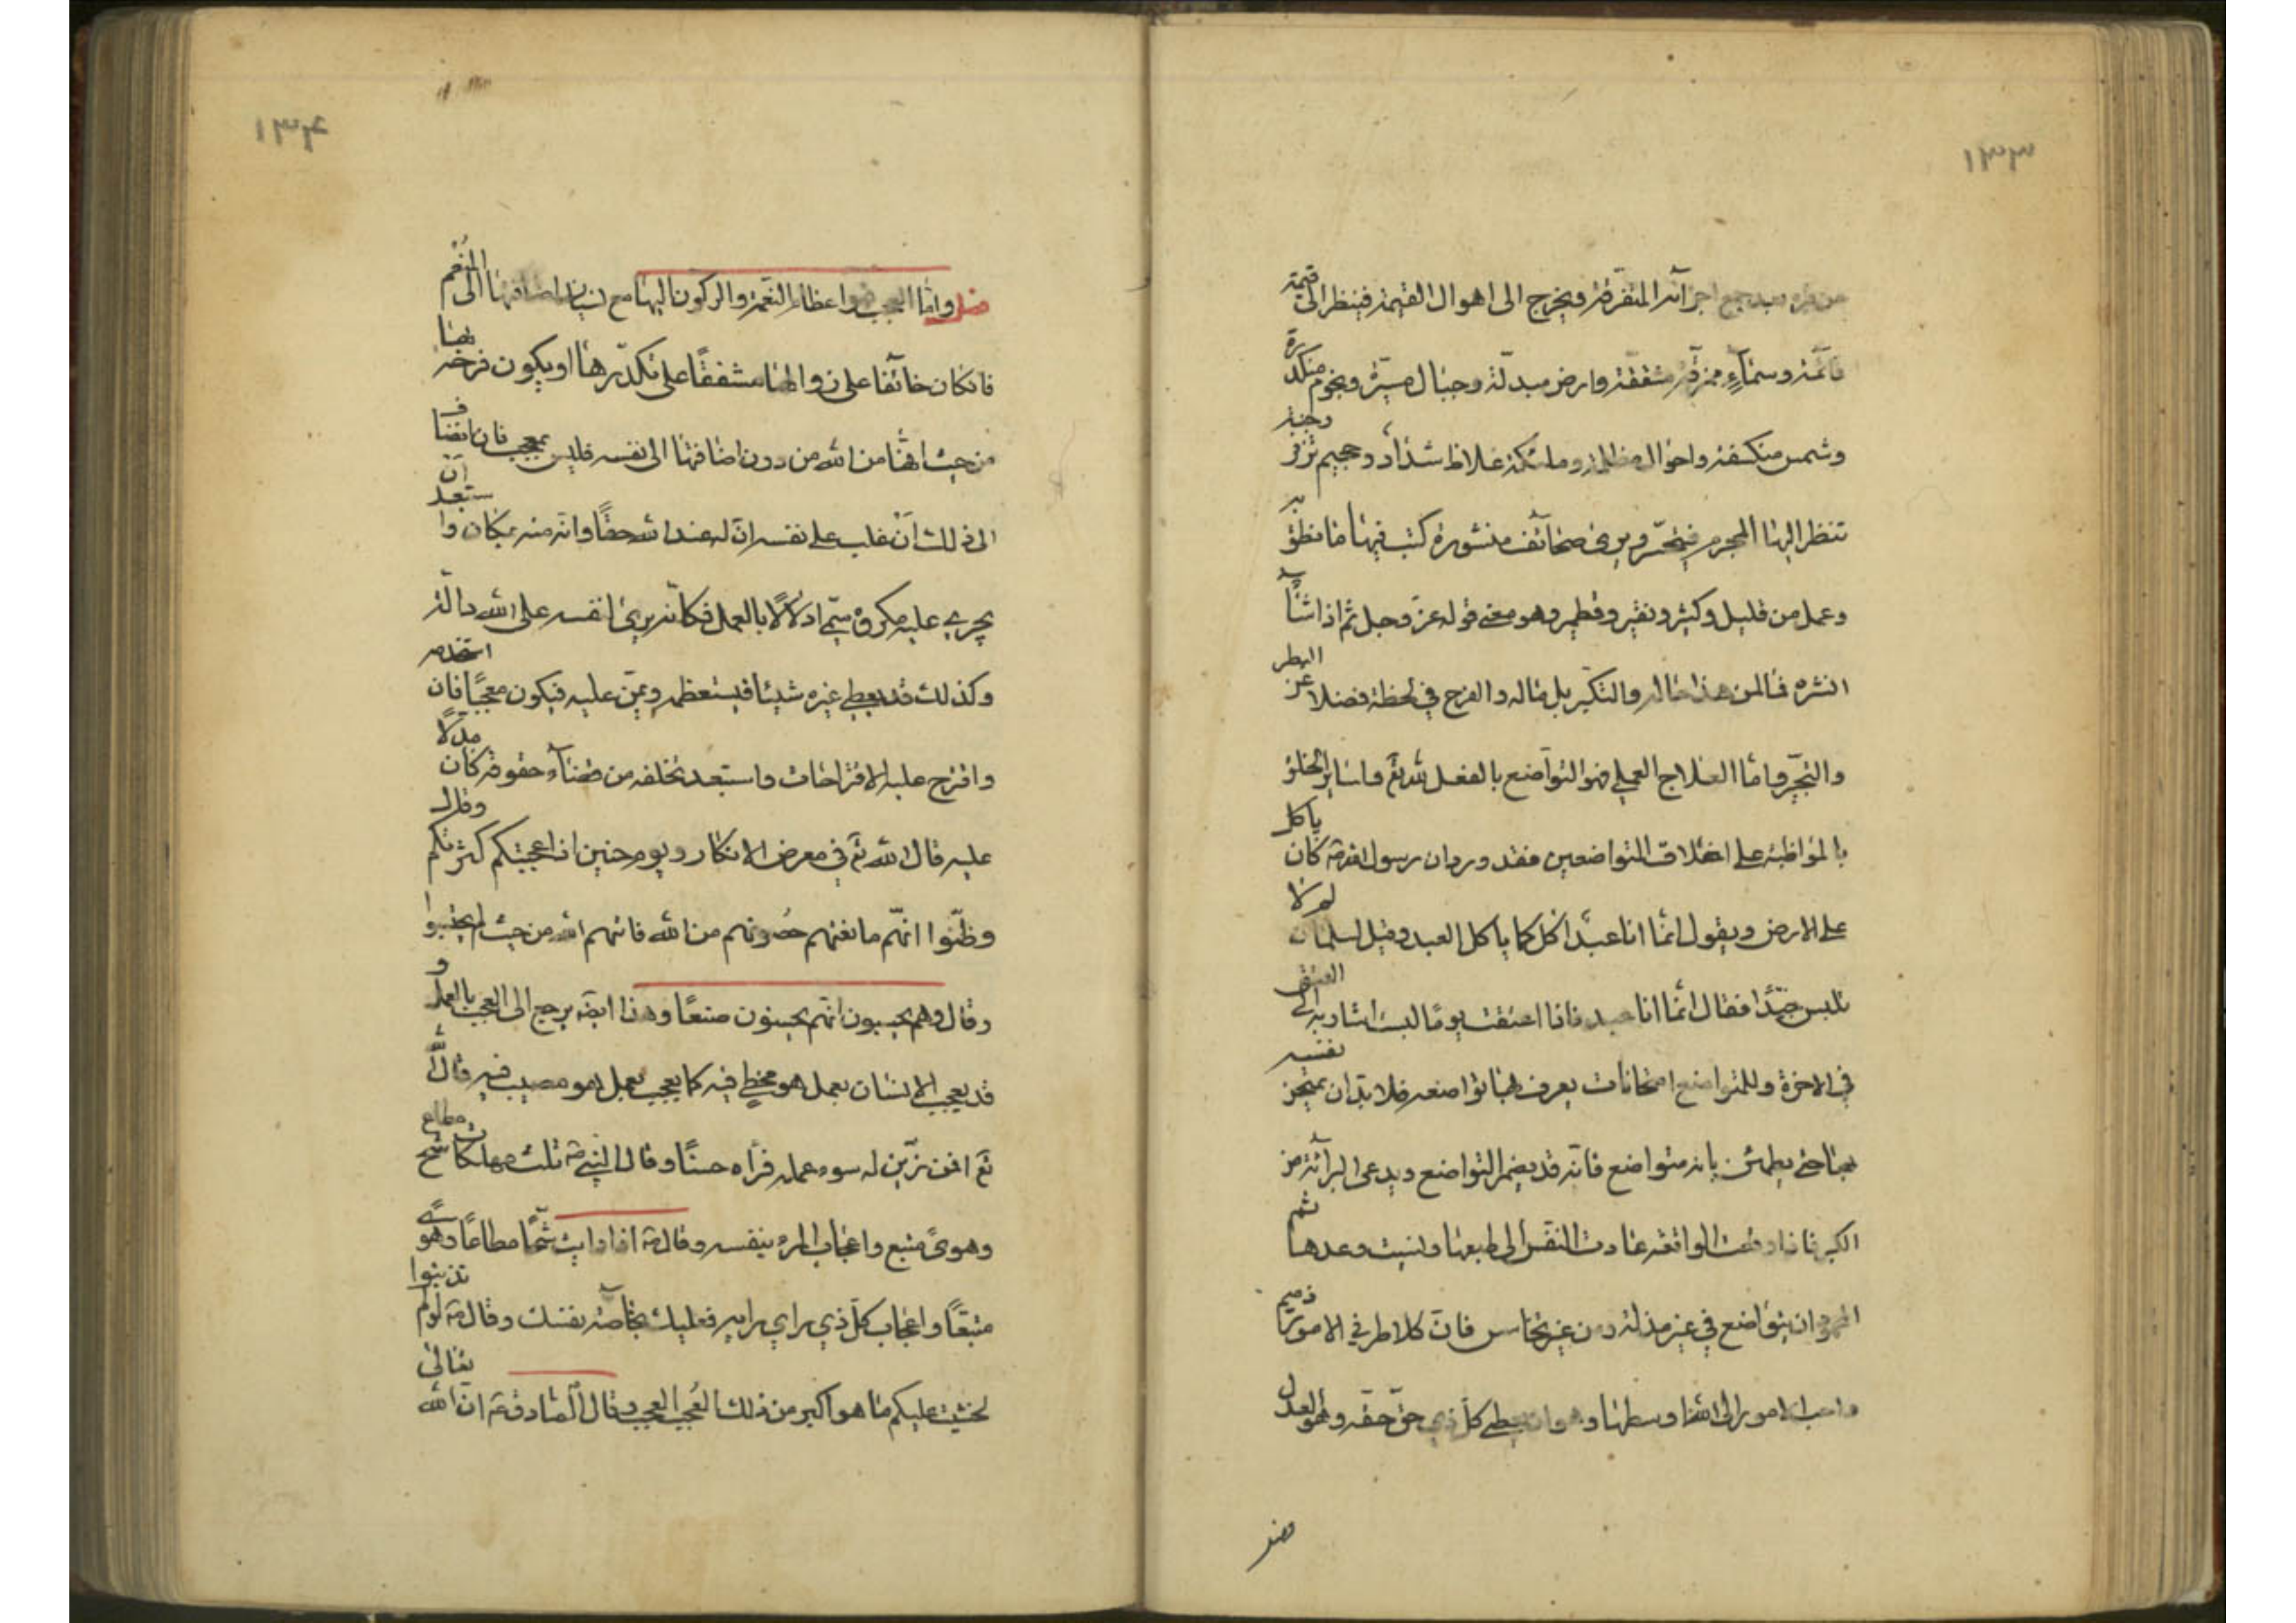 ١٣٣
من قبره بعد جمع اجزائه المتفرقة ويخرج الى اهوال القيمة فينظر الى قيمة
قائمة وسماء ممزقة مشققة وارض مبدلة وجبال مسيرة ونجوم منكدرة
وشمس منكسفة واحوال مظلمة وملئكة غلاظ شداد وجحيم تزفر وجنة
تنظر اليها المجرم فيتحسر ويرى صحائف منشورة كتب فيها ما نطق به
وعمل من قليل وكثير ونقير وقطمير وهو معنى قوله عز وجل ثم اذا شآء
انشره فما لمن هذا حاله والتكبر بل ماله والفرح في لحظة فضلا عن البطر
والتجبر واما العلاج العملي فهو التواضع بالفعل لله تع ولسائر الخلق
بالمواظبة على اخلاق المتواضعين فقد ورد ان رسول الله ص كان ياكل
على الارض ويقول انما انا عبد اكل كما ياكل العبد وقيل لسلمان لم لا
تلبس جيدا فقال انما انا عبد فاذا اعتقت يوما لبست اشار به الى العتق
في الاخرة وللمتواضع امتحانات يعرف بها تواضعه فلا بد ان يمتحن نفسه
بها حتى يطمئن بانه متواضع فانه قد يضمر التواضع ويدعى البرآئة من
الكبر فاذا وقعت الواقعة عادت النفس الى طبعها ونسيت وعدها ثم
المحمود ان يتواضع في غير مذلة ومن غير تخاسس فان كلا طرفي الامور ذميم
واحب الامور الى الله اوسطها وهو ان يعطي كل ذي حق حقه وهو العدل
فصل
١٣٤
فصل واما العجب فهو اعظام النعمة والركون اليها مع نسيان اضافتها الى المنعم
فان كان خائفا على زوالها مشفقا على تكدرها او يكون فرحه بها
من حيث انها من الله من دون اضافتها الى نفسه فليس بمعجب فان انضاف
الى ذلك ان غلب على نفسه ان له عند الله حقا وانه منه بمكان واستبعد ان
يجري عليه مكروه سمي ادلالا بالعمل فكانه يرى لنفسه على الله دالة
وكذلك قد يعطي غيره شيئا فيستعظمه ويمن عليه فيكون معجبا فان استخدمه
واقترح عليه الاقتراحات واستبعد تخلفه من قضاء حقوقه كان مدلا
عليه قال الله تع في معرض الانكار ويوم حنين اذ اعجبتكم كثرتكم وقال
وظنوا انهم مانعتهم حصونهم من الله فاتيهم الله من حيث لم يحتسبوا
وقال وهم يحسبون انهم يحسنون صنعا وهذا ايضا يرجع الى العجب بالعمل و
قد يعجب الانسان بعمل هو مخطي فيه كما يعجب بعمل هو مصيب فيه قال الله
تع افمن زين له سوء عمله فرآه حسنا وقال النبي ص ثلث مهلكات شح مطاع
وهوى متبع واعجاب المرء بنفسه وقال ص اذا رايت شحا مطاعا وهوى
متبعا واعجاب كل ذي راي برايه فعليك بخاصة نفسك وقال ص لو لم تذنبوا
لخشيت عليكم ما هو اكبر من ذلك العجب العجب وقال الصادق ع ان الله تعالى